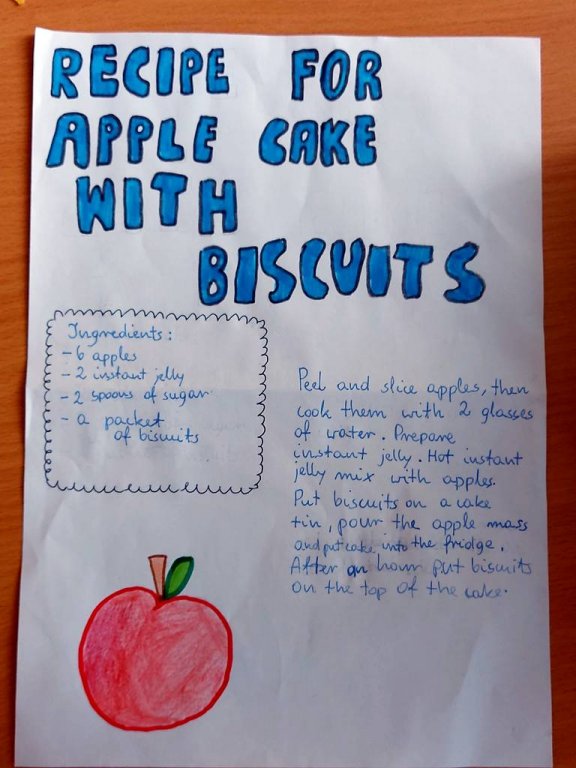 RECIPE FOR
APPLE CAKE
WITH
BISCUITS
Ingredients:
- 6 apples
- 2 instant jelly
- 2 spoons of sugar
- a packet
of biscuits
Peel and slice apples, then
cook them with 2 glasses
of water. Prepare
instant jelly. Hot instant
jelly mix with apples.
Put biscuits on a cake
tin, pour the apple mass
and put cake into the fridge.
After an hour put biscuits
on the top of the cake.